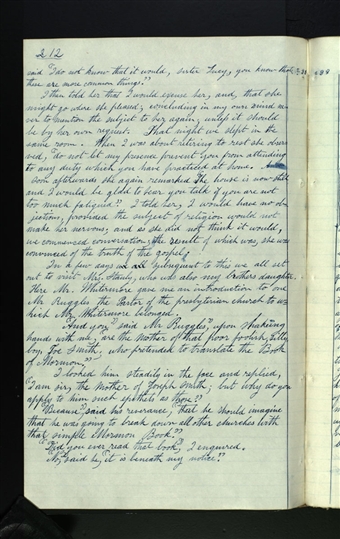 212
said "I do not know that it would, sister Lucy, you know that
there are more common things?"
I then told her that I would excuse her, and, that she
might go where she pleased; concluding in my own mind ne-
ver to mention the subject to her again, unless it should
be by her own request. That night we slept in the
same room. When I was about retiring to rest she obser-
ved, do not let my presence prevent you from attending
to any duty which you have practiced at home.
Soon afterwards she again remarked The house is now still
and I would be glad to hear you talk if you are not
too much fatigued". I told her, I would have no ob-
jections, provided the subject of religion would not
make her nervous; and as she did not think it would,
we commenced conversation, the result of which was, she was
convinced of the truth of the gospel.
In a few days subsequent to this we all set
out to visit Mrs. Stanly, who was also my brothers daughter.
Here Mr. Whitermore gave me an introduction to one
Mr Ruggles the Pastor of the presbyterian church to w-
hich Mr Whitermore belonged.
"And you," said Mr Ruggles, upon shaking
hands with me, are the Mother of that poor foolish, silly
boy, Joe Smith, who pretended to translate the Book
of Mormon."
I looked him steadily in the face and replied,
"I am sir, the Mother of Joseph Smith; but why do you
apply to him such epithets as those?"
"Because," said his reverance, "that he should imagine
that he was going to break down all other churches with
that simple Mormon Book?"
"Did you ever read that book," I enquired.
"No," said he, "it is beneath my notice."